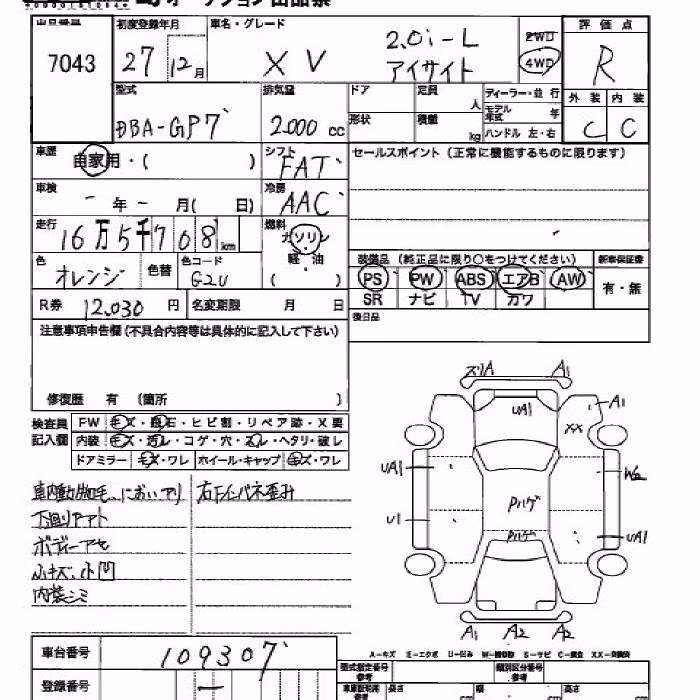 オークション出品票
出品番号 初度登録年月 車名・グレード 評価点
7043 27 12月 XV 2.0i-L アイサイト 2WD 4WD R
型式 排気量 ドア 定員 人 ディーラー・並行 外装 内装
DBA-GP7 2.000 cc 形状 積載 kg モデル年式 年 ハンドル 左・右 C C
車歴 自家用・( ) シフト FAT セールスポイント(正常に機能するものに限ります)
車検 - 年 - 月( 日) 冷房 AAC
走行 16万5千708km 燃料 ガソリン・軽・油
装備品(純正品に限り○をつけてください) 新車保証書
色 オレンジ 色替 色コード G2U PS PW ABS エアB AW 有・無
SR ナビ TV カワ
R券 12.030円 名変期限 月 日 後日品
注意事項申告欄(不具合内容等は具体的に記入して下さい)
修復歴 有 (箇所 )
検査員記入欄 FW キズ・飛石・ヒビ割・リペア跡・X要
内装 キズ・汚レ・コゲ・穴・スレ・ヘタリ・破レ
ドアミラー キズ・ワレ ホイール・キャップ キズ・ワレ
車内動物毛、においアリ 右Fインパネ歪み
下廻りサビアト
ボディーアセ
小キズ、小凹
内装シミ
ズリA A1
UA1 A1
XX
UA1 W2
Pハゲ
U1 Pハゲ UA1
A1 A2 A2
A-キズ E-エクボ U-凹み W-補修跡 S-サビ C-腐食 XX-交換済
車台番号 109307 型式指定番号 参考 類別区分番号 参考
登録番号 - 車庫証明用 参考 長さ cm 幅 cm 高さ cm